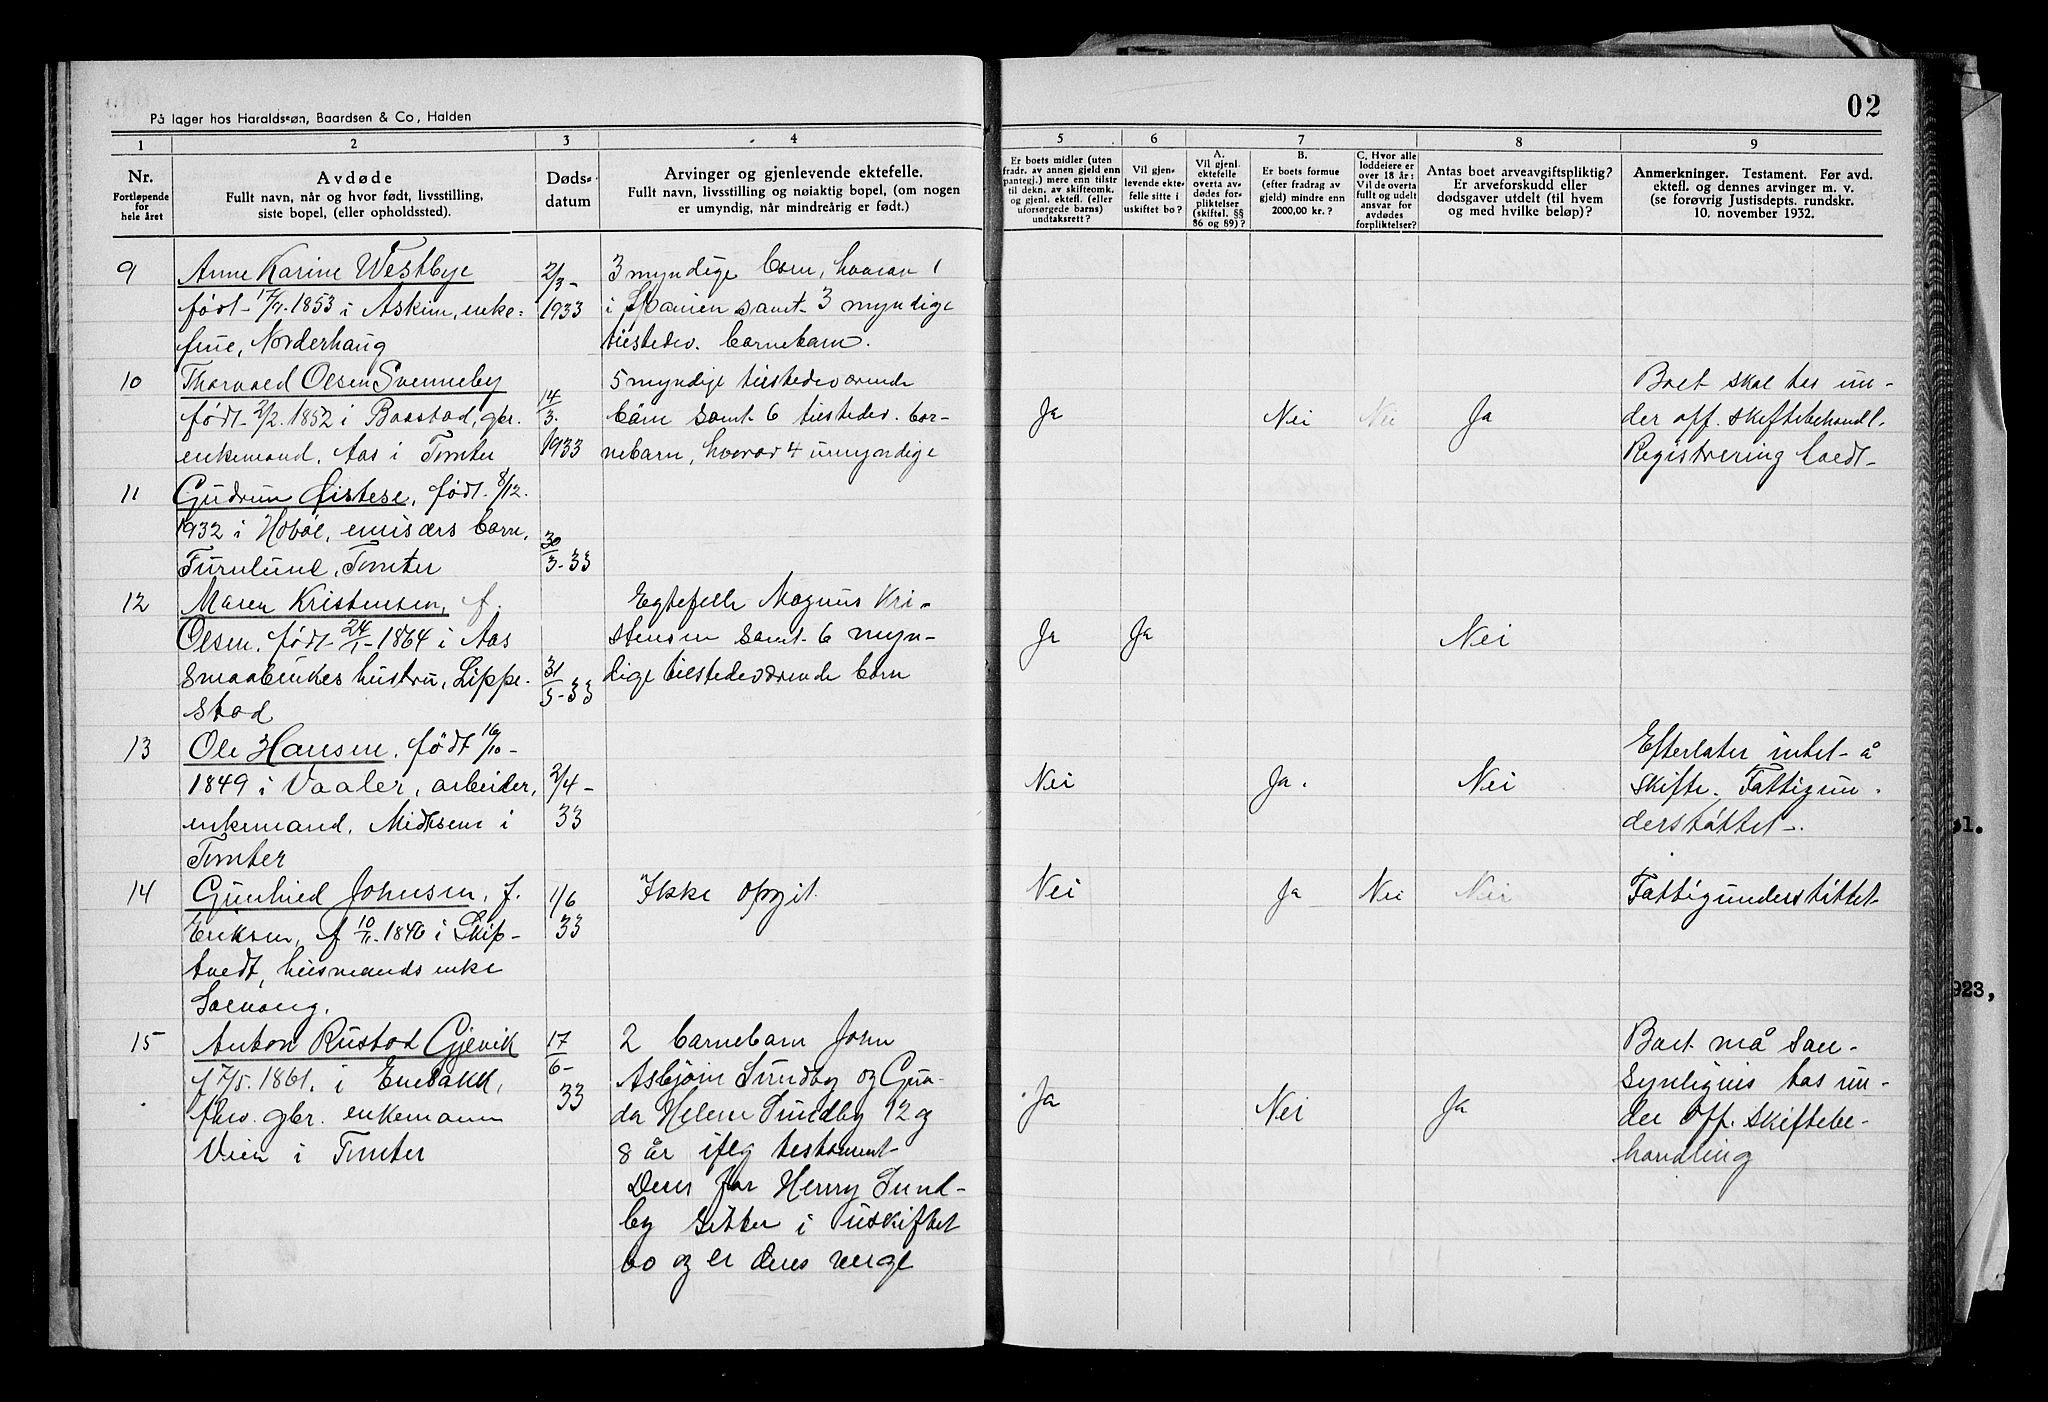 02
På lager hos Haraldssøn, Baardsen & Co, Halden
1 2 3 4 5 6 7 8 9
Nr.
Fortløpende
for
hele året
Avdøde
Fullt navn, når og hvor født, livsstilling,
siste bopel, (eller opholdssted).
Døds-
datum
Arvinger og gjenlevende ektefelle.
Fullt navn, livsstilling og nøiaktig bopel, (om nogen
er umyndig, når mindreårig er født.)
Er boets midler (uten
fradr. av annen gjeld enn
pantegj.) mere enn tilstr
til dekn. av skifteomk.
og gjenl. ektefl. (eller
uforsørgede barns)
undtaksrett?
Vil gjen-
levende ekte-
felle sitte i
uskiftet bo?
A.
Vil gjenl.
ektefelle
overta av-
dødes for-
pliktelser
(skiftel. §§
86 og 89)?
B.
Er boets formue
(efter fradrag av
gjeld) mindre enn
2000,00 kr.?
C. Hvor alle
loddeiere er
over 18 år:
Vil de overta
fullt og udelt
ansvar for
avdødes
forpliktelser?
Antas boet arveavgiftspliktig?
Er arveforskudd eller
dødsgaver utdelt (til hvem
og med hvilke beløp)?
Anmerkninger. Testament. Før avd.
ektefl. og dennes arvinger m. v.
(se forøvrig Justisdepts. rundskr.
10. november 1932.
9
Anne Karine Westbye
født 17/11-1853 i Askim, enke-
frue, Norderhaug
2/3-
1933
3 myndige barn, hvorav 1
i Spanien samt 3 myndige
tilstedev. barnebarn.
10
Thorvald Olsen Svenneby
født 2/2. 1852 i Baastad, gbr.
enkemand, Aas i Tomter
14/3.
1933
5 myndige tilstedeværende
barn samt 6 tilstedev. bar-
nebarn, hvorav 4 umyndige
Ja
Nei
Nei
Ja
Boet skal tas un-
der off. skiftebehandl.
Registrering holdt
11
Gudrun Øistese, født 8/12.
1932 i Hobøl, emisærs barn,
Furulund, Tomter
30/3-33
12
Maren Kristensen, f.
Olsen, født 24/1-1864 i Aas
smaabrukes hustru, Lippe-
stad
31/3-33
Egtefelle Magnus Kri-
stensen samt 6 myn-
dige tilstedeværende barn
Ja
Ja
Nei
13
Ole Hansen, født 16/10-
1849 i Vaaler, arbeider,
enkemand, Midtsem i
Tomter
2/4-
33
Nei
Ja.
Nei
Efterlater intet å
skifte. Fattigun-
derstøttet.
14
Gunhild Johnsen, f.
Eriksen, f 10/11.1846 i Skip-
tvedt, husmands enke
Solvang.
1/6
33
Ikke opgit.
Nei
Ja
Nei
Nei
Fattigunderstøttet
15
Anton Rustad Gjevik
f 7/5. 1861. i Enebakk,
fhv. gbr. enkemann
Vien i Tomter
17/6-
33
2 barnebarn John
Asbjørn Sundby og Gun-
da Helene Sundby 12 og
8 år iflg testament
Deres far Henry Sund-
by sitter i uskiftet
bo og er deres verge
Ja
Nei
Ja
Boet må san-
synligvis tas un-
der off. skiftebe-
handling
923,